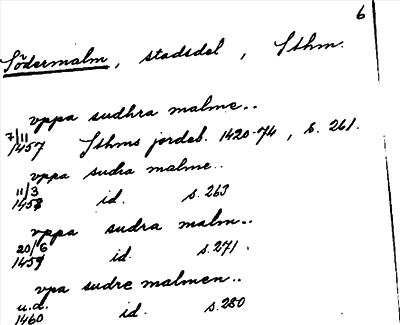 6
Södermalm, stadsdel, Sthm.
vppa sudhra malme..
7/11 1457 Sthms jordeb. 1420-74, s. 261.
vppa sudra malme..
11/3 1458 id. s. 263
vppa sudra malm..
20/6 1459 id. s. 271.
vpa sudre malmen..
u.d. 1460 id. s. 280